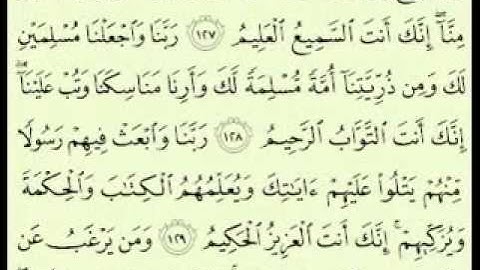 مِنَّآۖ إِنَّكَ أَنتَ ٱلسَّمِيعُ ٱلْعَلِيمُ ١٢٧ رَبَّنَا وَٱجْعَلْنَا مُسْلِمَيْنِ
لَكَ وَمِن ذُرِّيَّتِنَآ أُمَّةً مُّسْلِمَةً لَّكَ وَأَرِنَا مَنَاسِكَنَا وَتُبْ عَلَيْنَآۖ
إِنَّكَ أَنتَ ٱلتَّوَّابُ ٱلرَّحِيمُ ١٢٨ رَبَّنَا وَٱبْعَثْ فِيهِمْ رَسُولًا
مِّنْهُمْ يَتْلُوا۟ عَلَيْهِمْ ءَايَـٰتِكَ وَيُعَلِّمُهُمُ ٱلْكِتَـٰبَ وَٱلْحِكْمَةَ
وَيُزَكِّيهِمْۚ إِنَّكَ أَنتَ ٱلْعَزِيزُ ٱلْحَكِيمُ ١٢٩ وَمَن يَرْغَبُ عَن